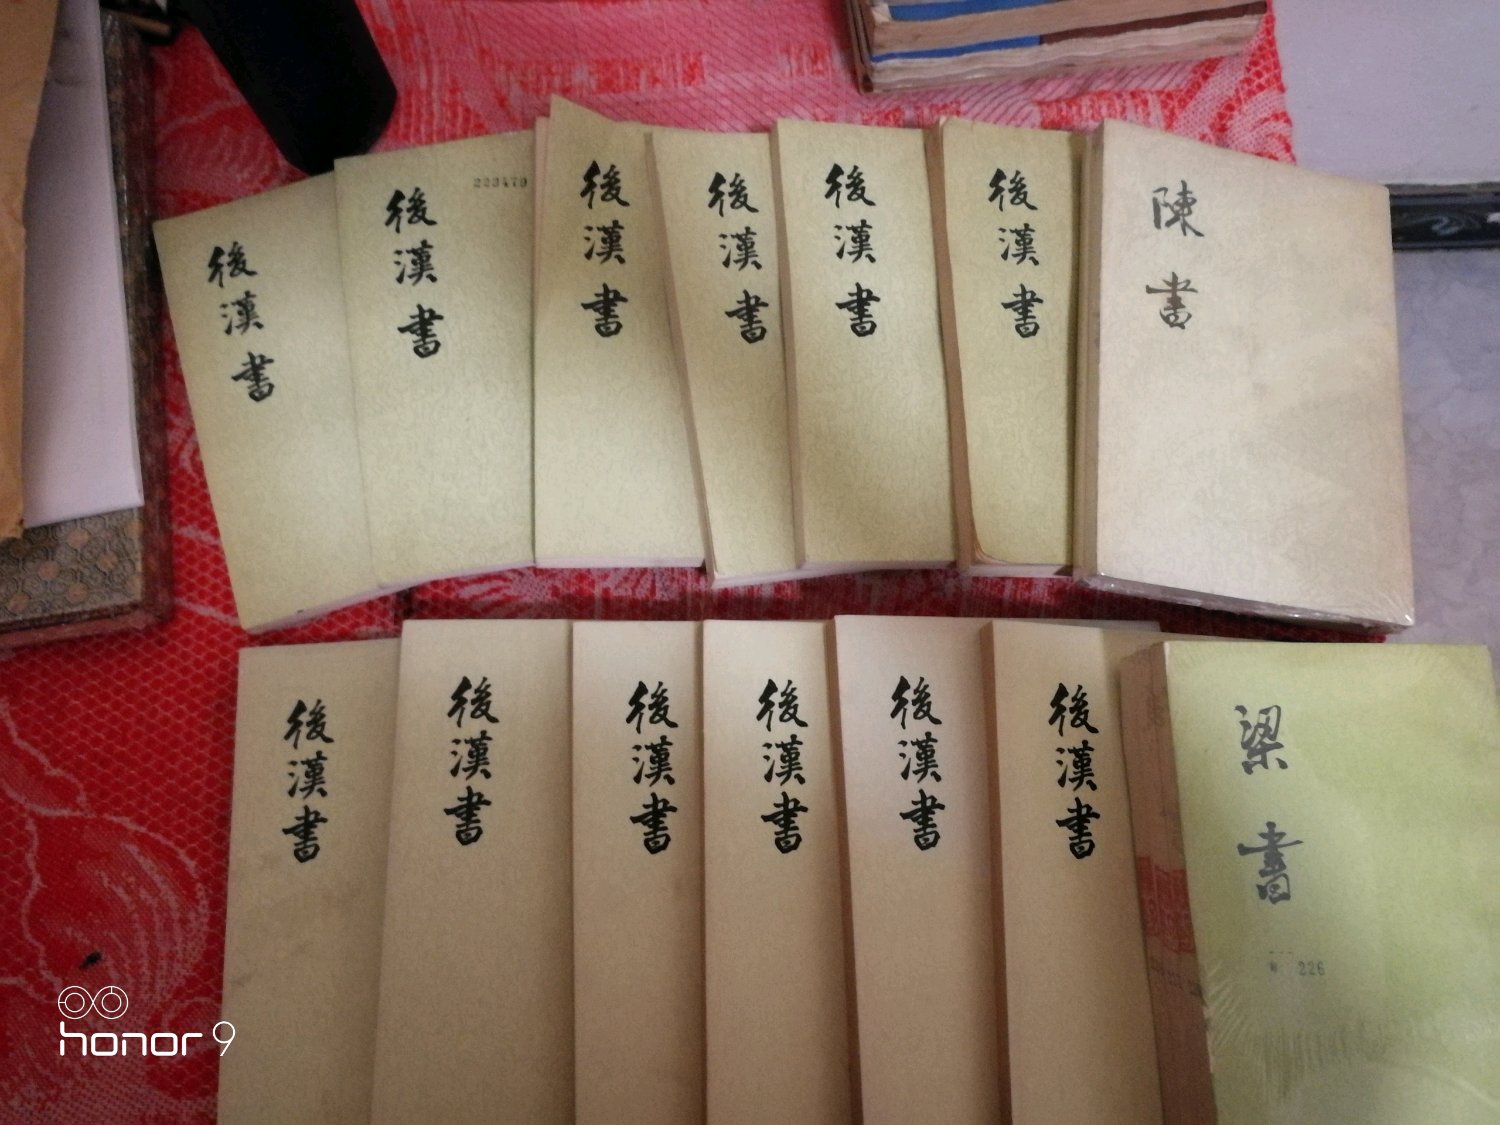 後漢書
後漢書
223479
後漢書
後漢書
後漢書
後漢書
陳書
後漢書
後漢書
後漢書
後漢書
後漢書
後漢書
梁書
226
honor 9